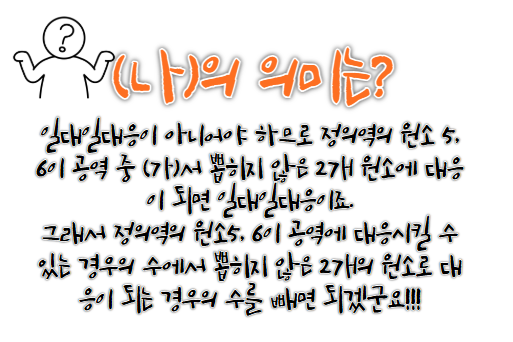 ?
(나)의 의미는?
일대일대응이 아니어야 하므로 정의역의 원소 5,
6이 공역 중 (가)서 뽑히지 않은 2개 원소에 대응
이 되면 일대일대응이죠.
그래서 정의역의 원소5, 6이 공역에 대응시킬 수
있는 경우의 수에서 뽑히지 않은 2개의 원소로 대
응이 되는 경우의 수를 빼면 되겠군요!!!